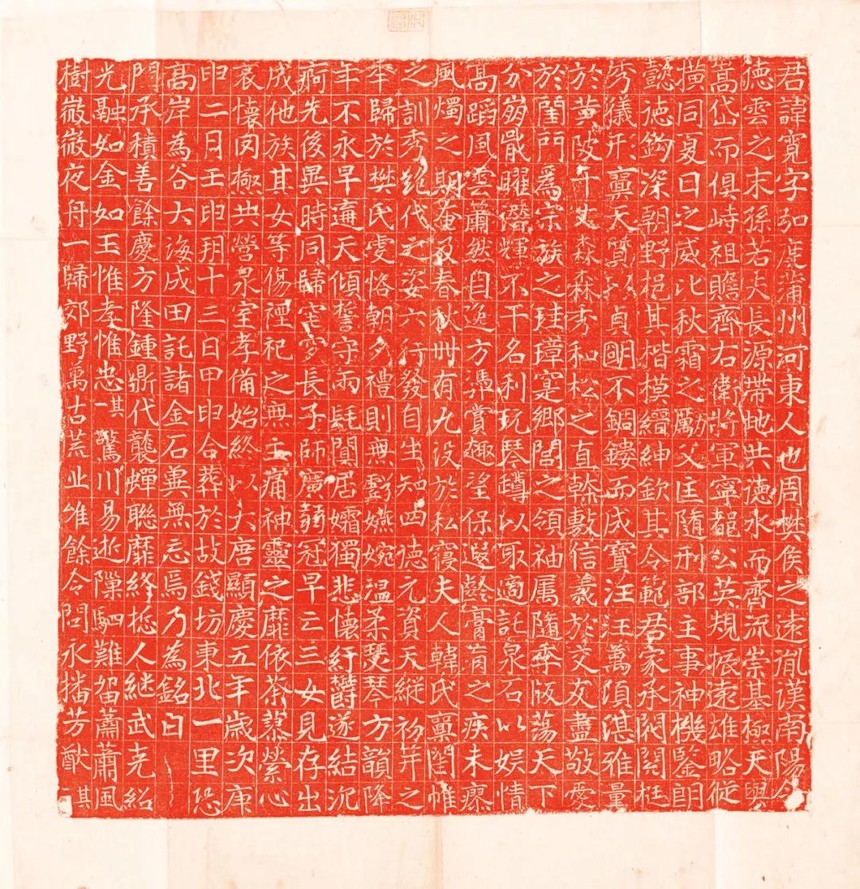 君諱寬字弘度蒲州河東人也周樊侯之遠胤漢南陽令
德雲之末孫若夫長源帶地共德水而齊流崇基極天與
嵩岱而俱峙祖瞻齊右衛將軍寧都公英規振遠雄略從
橫同夏日之威比秋霜之勵父匡隨刑部主事神機鑒朗
懿德鈎深朝野挹其楷模縉紳欽其令範君家承閥閱桂
秀犧形稟天質以貞明不鐫鏤而成寶汪汪萬頃湛雅量
於黃陂千丈森森秀和松之直榦敷信義於交友盡敬愛
於閨門為宗族之珪璋寔鄉閭之領袖属隨季版蕩天下
分崩戢曜潛輝不干名利玩琴罇以取適託泉石以娛情
高蹈風雲蕭然自逸方憑賞趣望保遐齡膏肓之疾未瘳
風燭之期奄及春秋卌有九沒於私寢夫人韓氏稟閨帷
之訓秀絕代之姿六行發自生知四德元資天縱初笄之
年歸於樊氏虔恪朝夕禮則無虧嬿婉溫柔瑟琴方韻降
年不永早遘天傾誓守兩髦闃居孀獨悲懷紆欝遂結沉
痾先後異時同歸窀穸長子師廣弱冠早亡三女見存出
成他族其女等傷禋祀之無主痛神靈之靡依荼慕縈心
哀懷罔極共營泉室孝備始終以大唐顯慶五年歲次庚
申二月壬申朔十三日甲申合葬於故錢坊東北一里恐
高岸為谷大海成田託諸金石冀無忘焉乃為銘曰
門承積善餘慶方隆鍾鼎代襲蟬聯靡終挺人継武克紹
光融如金如玉惟孝惟忠其一驚川易逝隟駟難留蕭蕭風
樹微微夜舟一歸郊野萬古荒丘雖餘令問永播芳猷其